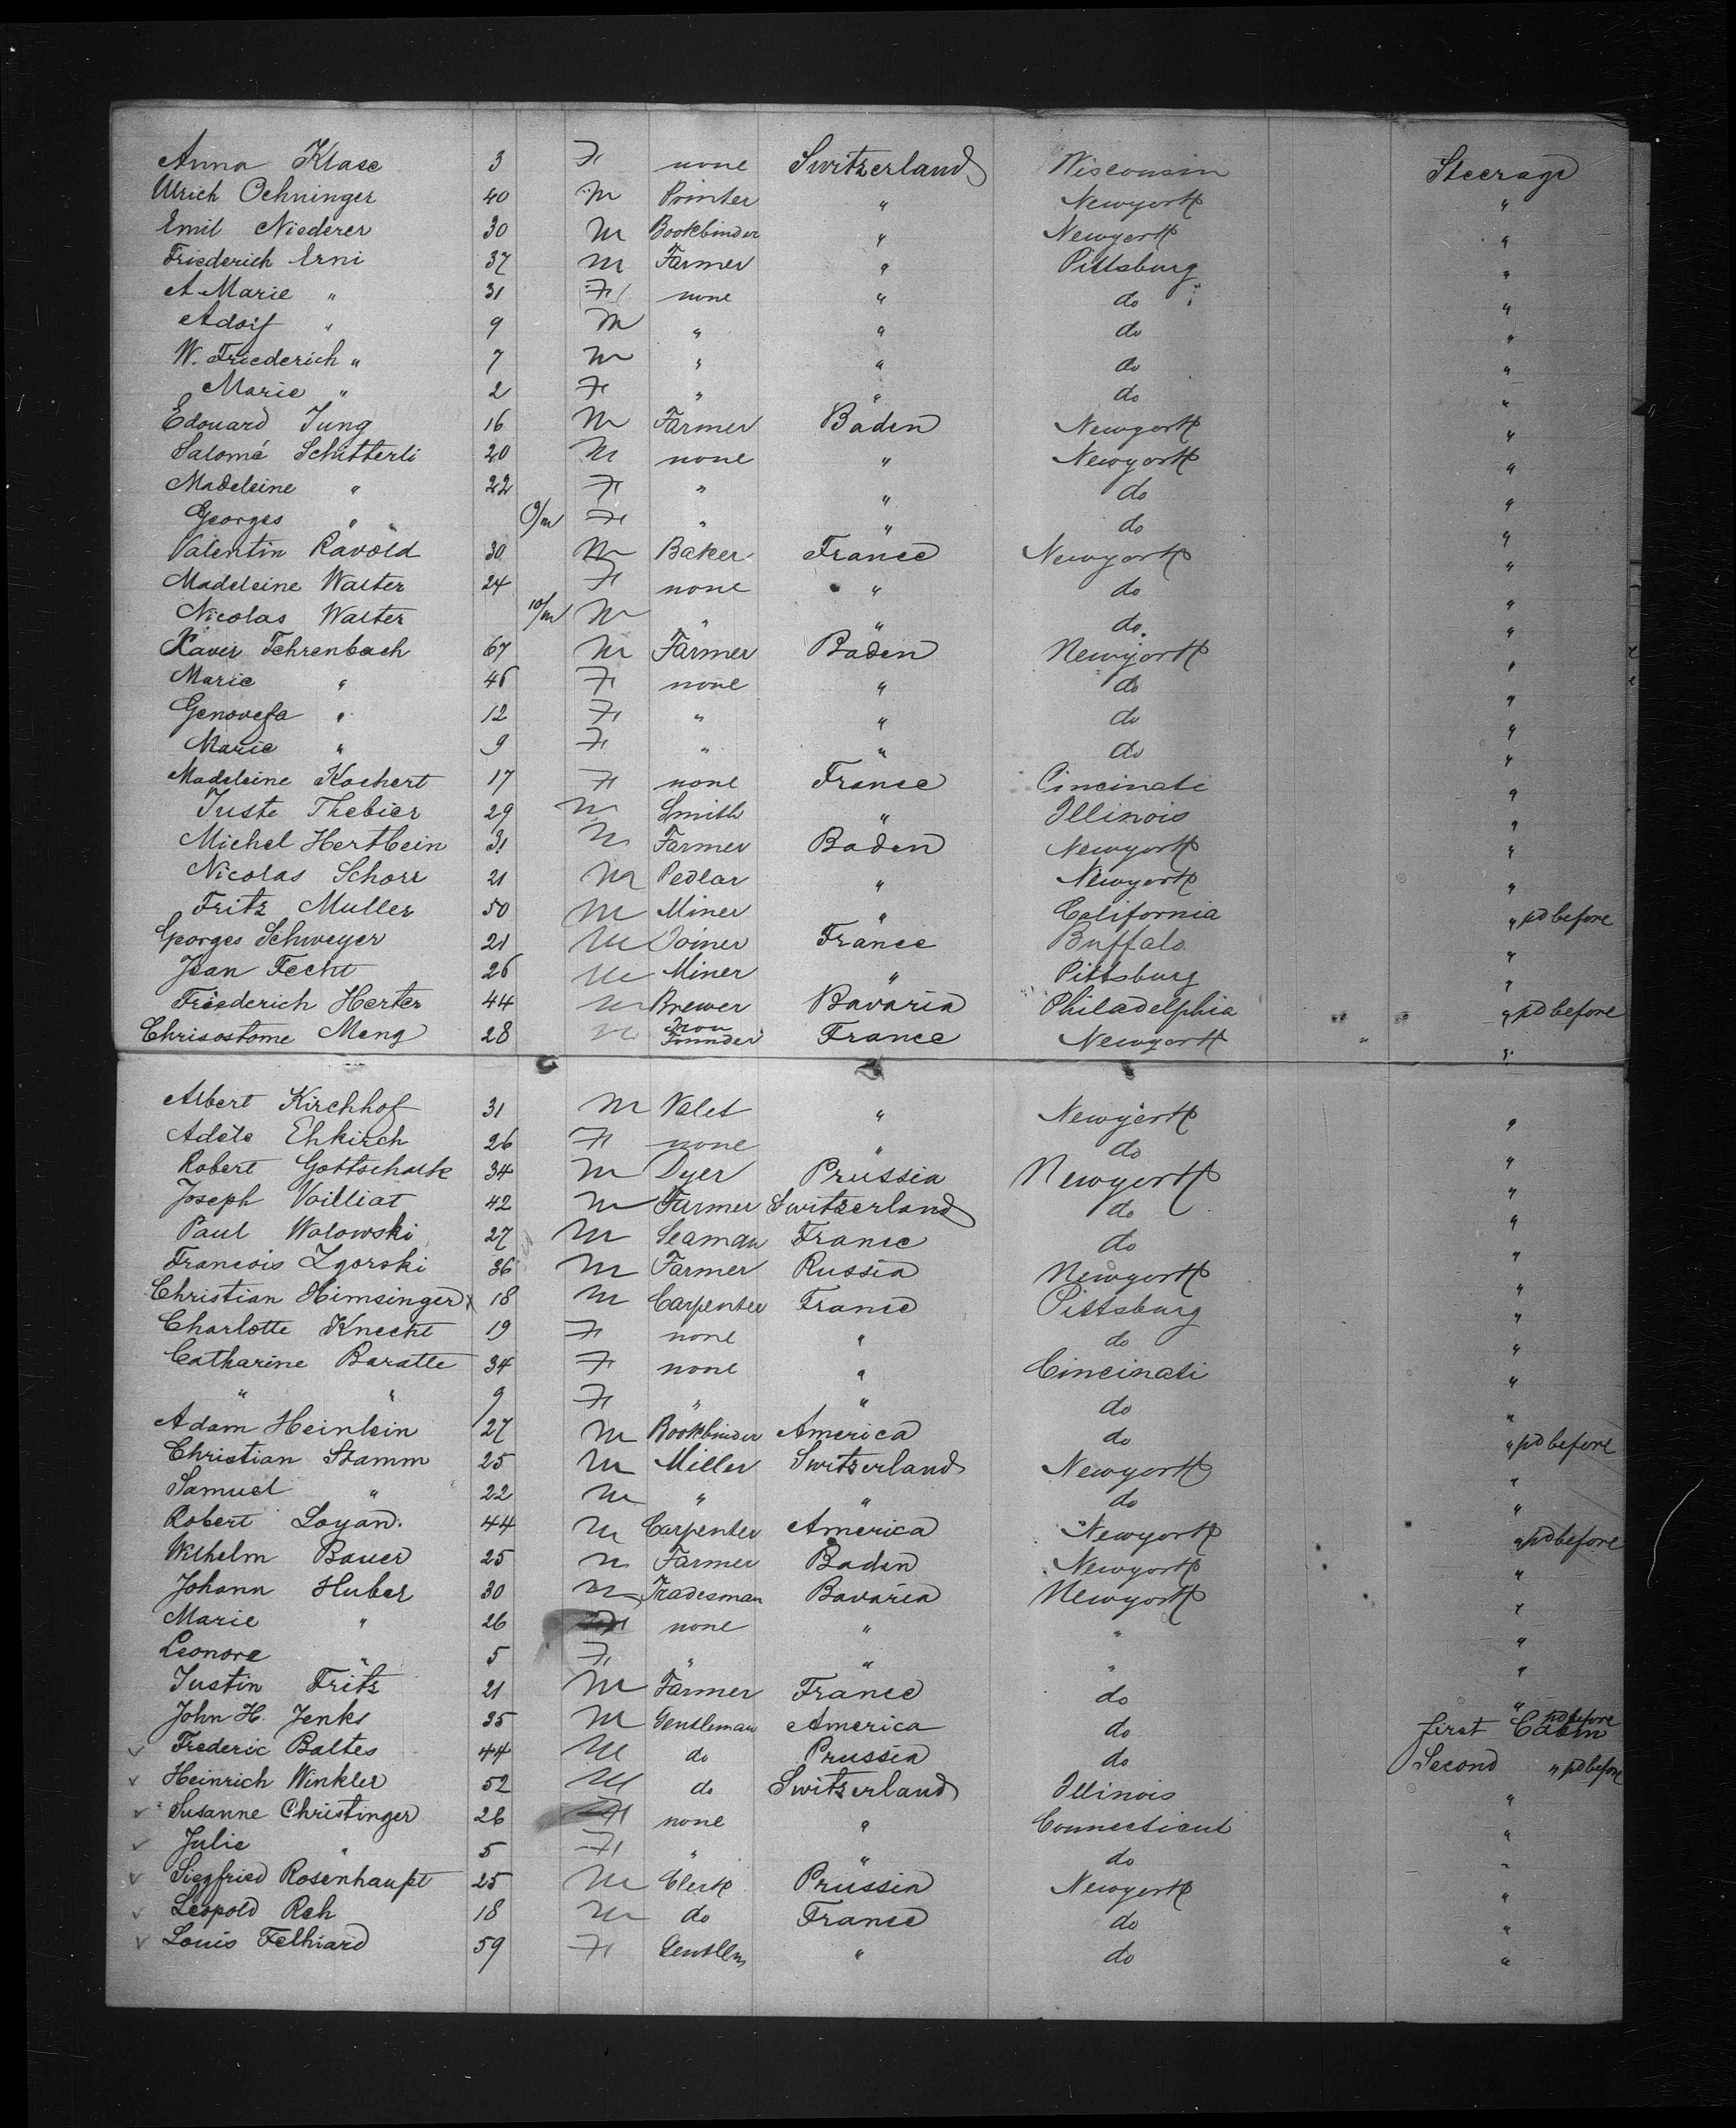 Anna Klase 3 F none Switzerland Wisconsin Steerage
Ulrich Oehninger 40 M Printer " Newyork "
Emil Niederer 30 M Bookbinder " Newyork "
Friederich Erni 37 M Farmer " Pittsburg "
A Marie " 31 F none " do "
Adolf " 9 M " " do "
W. Friederich " 7 M " " do "
Marie " 2 F " " do "
Edouard Jung 16 M Farmer Baden Newyork "
Salomé Schitterli 20 M none " Newyork "
Madeleine " 22 F " " do "
Georges " 9/m F " " do "
Valentin Ravold 30 M Baker France Newyork "
Madeleine Walter 24 F none " do "
Nicolas Walter 10/m M " " do "
Xavier Fehrenbach 67 M Farmer Baden Newyork "
Marie " 46 F none " do "
Genovefa " 12 F " " do "
Marie " 9 F " " do "
Madeleine Kochert 17 F none France Cincinati "
Juste Thebier 29 M Smith " Illinois "
Michel Hertlein 31 M Farmer Baden Newyork "
Nicolas Schorr 21 M Pedlar " Newyork "
Fritz Muller 50 M Miner " California " pd before
Georges Schweyer 21 M Joiner France Buffalo "
Jean Fecht 26 M Miner " Pittsburg "
Friederich Herter 44 M Brewer Bavaria Philadelphia " pd before
Chrisostome Meng 28 M Iron Founder France Newyork "
Albert Kirchhof 31 M Valet " Newyork "
Adèle Ehkirch 26 F none " do "
Robert Gottschalk 34 M Dyer Prussia Newyork "
Joseph Voilliat 42 M Farmer Switzerland do "
Paul Wolowski 27 M Seaman France do "
Francois Zgorski 36 M Farmer Russia Newyork "
Christian Himsinger 18 M Carpenter France Pittsburg "
Charlotte Knecht 19 F none " do "
Catharine Baratte 34 F none " Cincinati "
" " 9 F " " do "
Adam Heinlein 27 M Bookbinder America do " pd before
Christian Stamm 25 M Miller Switzerland Newyork "
Samuel " 22 M " " do "
Robert Loyan. 44 M Carpenter America Newyork " pd before
Wilhelm Bauer 25 M Farmer Baden Newyork "
Johann Huber 30 M Tradesman Bavaria Newyork "
Marie " 26 F none " " "
Leonore " 5 F " " " "
Justin Fritz 21 M Farmer France do "
John H. Jenks 35 M Gentleman America do first Cabin pd before
Frederic Baltes 44 M do Prussia do Second " pd before
Heinrich Winkler 52 M do Switzerland Illinois "
Susanne Christinger 26 F none " Connecticut "
Julie " 5 F " " do "
Siegfried Rosenhaupt 25 M Clerk Prussia Newyork "
Leopold Reh 18 M do France do "
Louis Felhiard 59 F Gentlem " do "